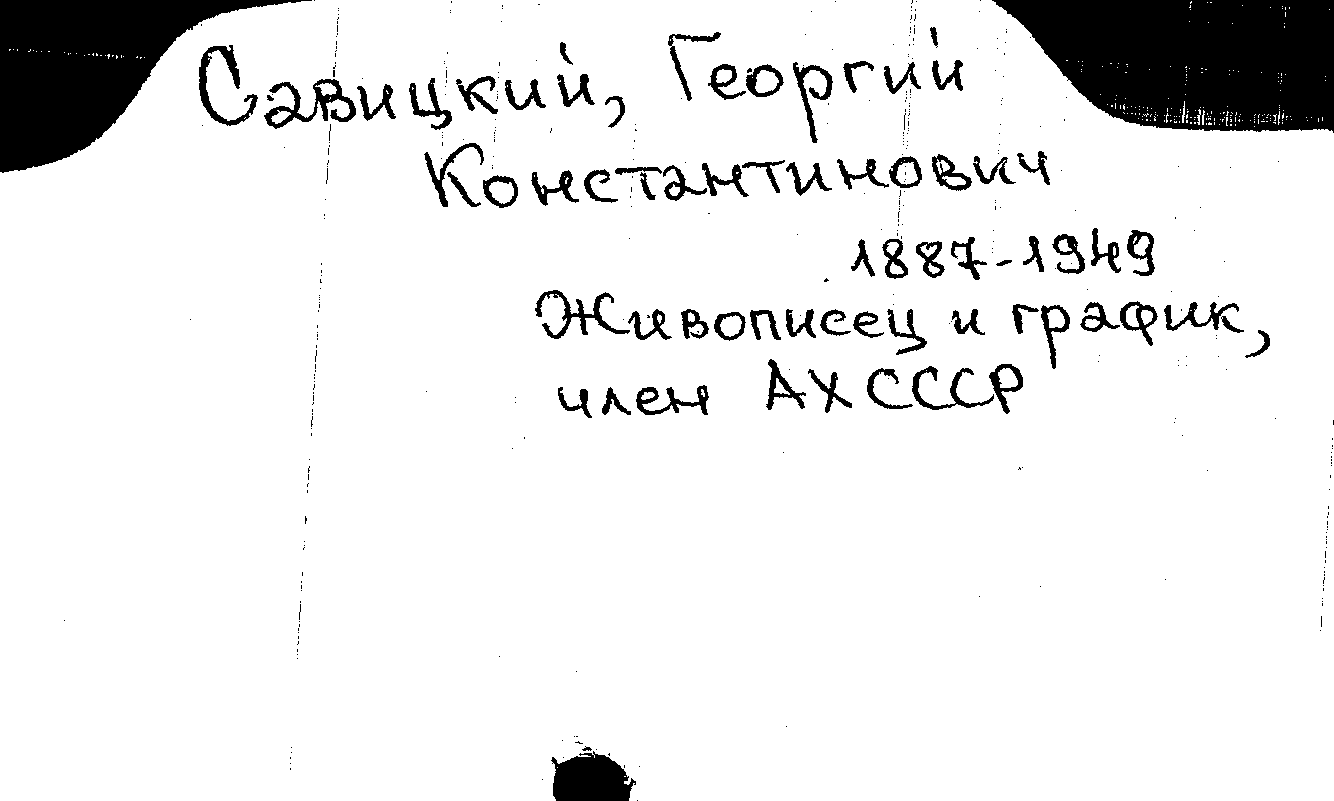 Савицкий, Георгий
Константинович
1887-1949
Живописец и график,
член АХ СССР